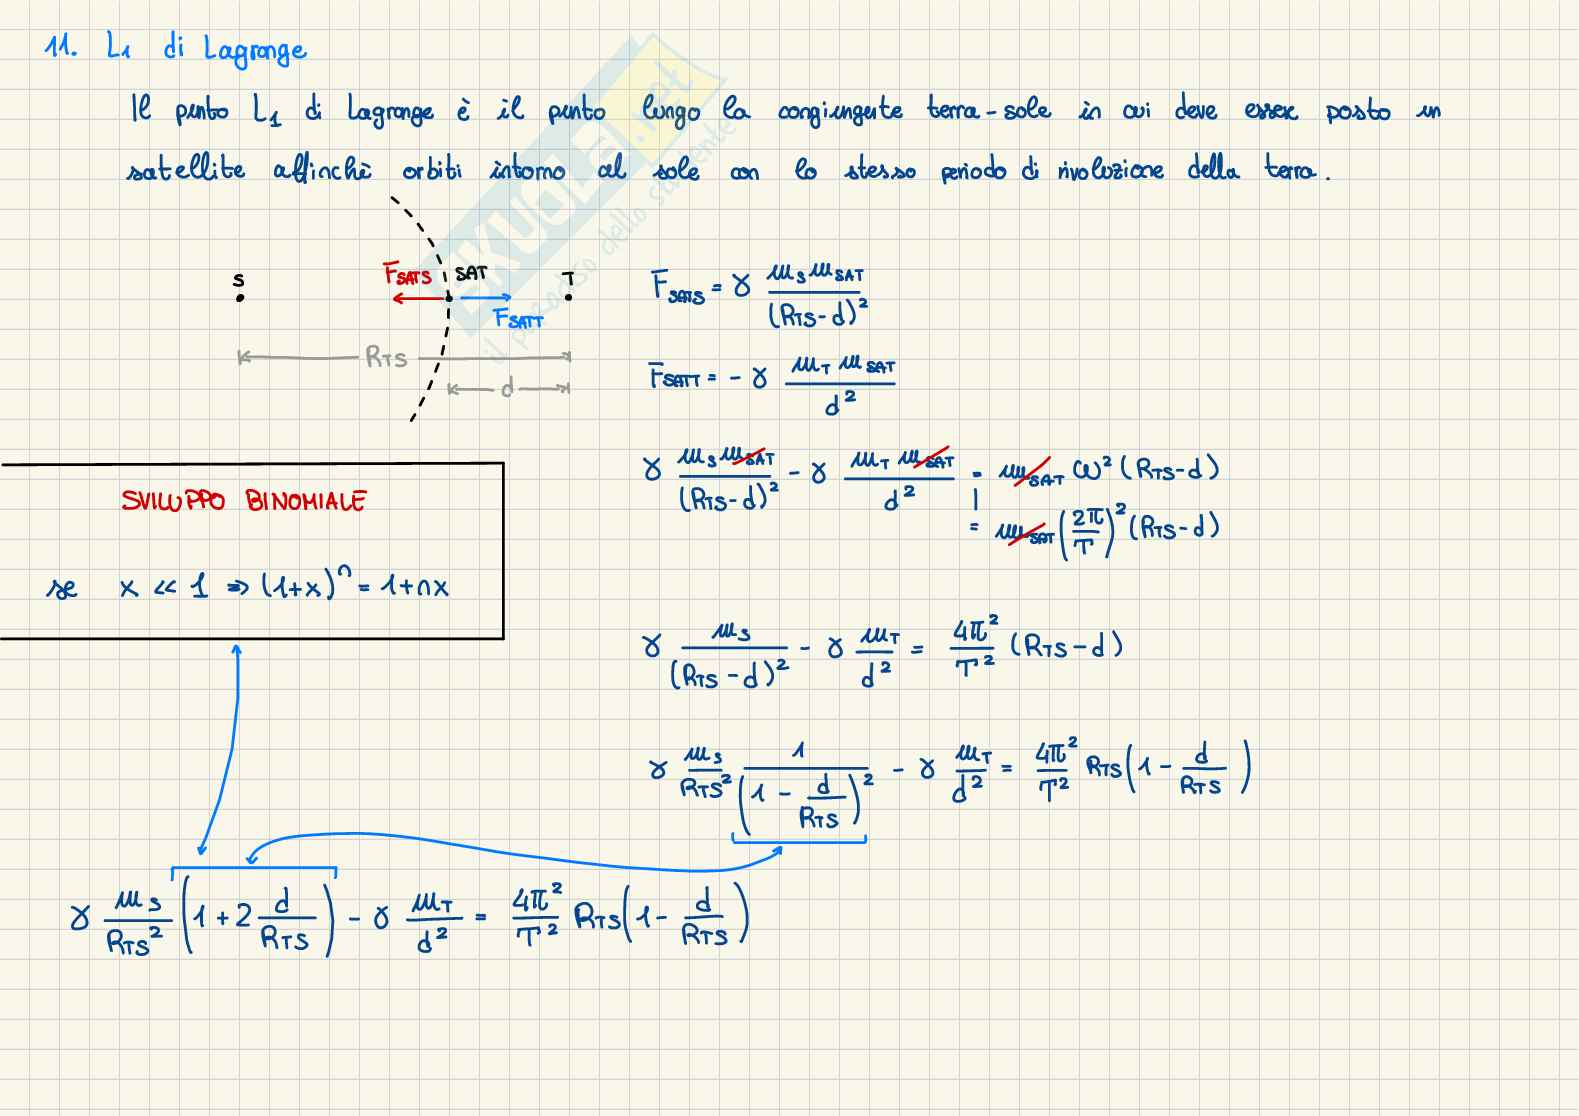 11. L1 di Lagrange
Il punto L1 di Lagrange è il punto lungo la congiungente terra-sole in cui deve esser posto un
satellite affinchè orbiti intorno al sole con lo stesso periodo di rivoluzione della terra.
SKUOLA.net
il paradiso dello studente
S FSATS SAT T
FSATT
RTS
d
F̅SATS = γ mS mSAT / (RTS-d)²
F̅SATT = - γ mT mSAT / d²
γ mS mSAT / (RTS-d)² - γ mT mSAT / d² = mSAT ω² (RTS-d)
= mSAT (2π/T)² (RTS-d)
SVILUPPO BINOMIALE
se x << 1 => (1+x)ⁿ = 1+nx
γ mS / (RTS-d)² - γ mT / d² = 4π²/T² (RTS-d)
γ mS/RTS² 1/(1 - d/RTS)² - γ mT/d² = 4π²/T² RTS (1 - d/RTS)
γ mS/RTS² (1+2 d/RTS) - γ mT/d² = 4π²/T² RTS (1 - d/RTS)